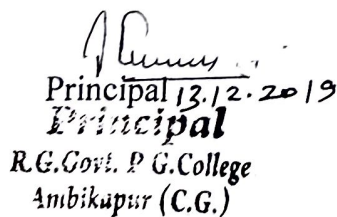 Principal 13.12.2019
Principal
R.G.Govt. P G.College
Ambikapur (C.G.)